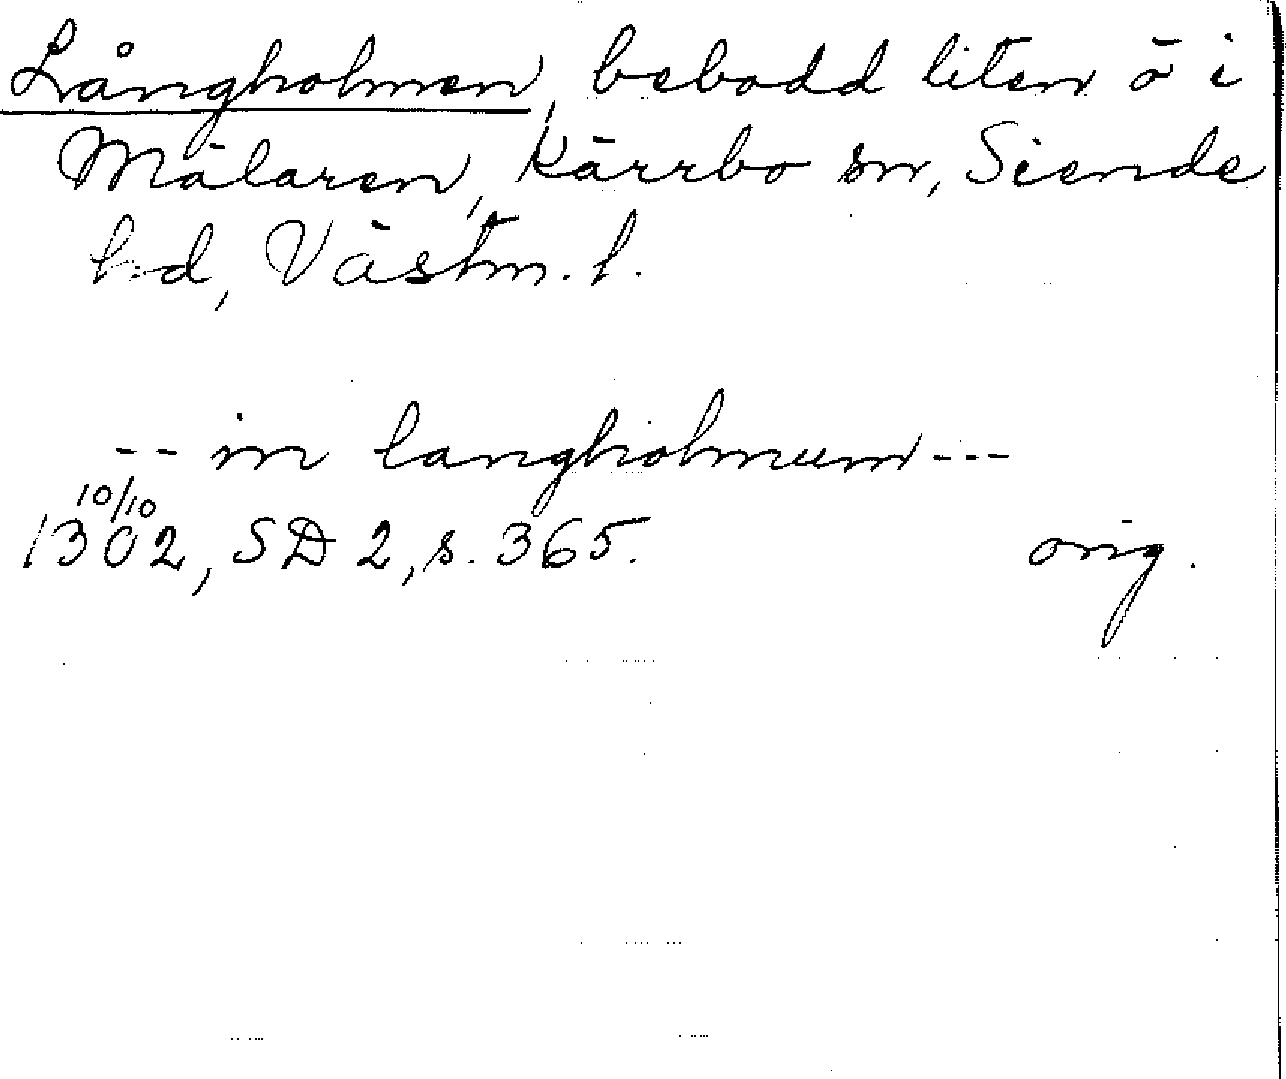 Långholmen, bebodd liten ö i
Mälaren, Kärrbo sn, Siende
h:d, Västm. l.
-- in langholmum ---
10/10
1302, SD 2, s. 365. orig.